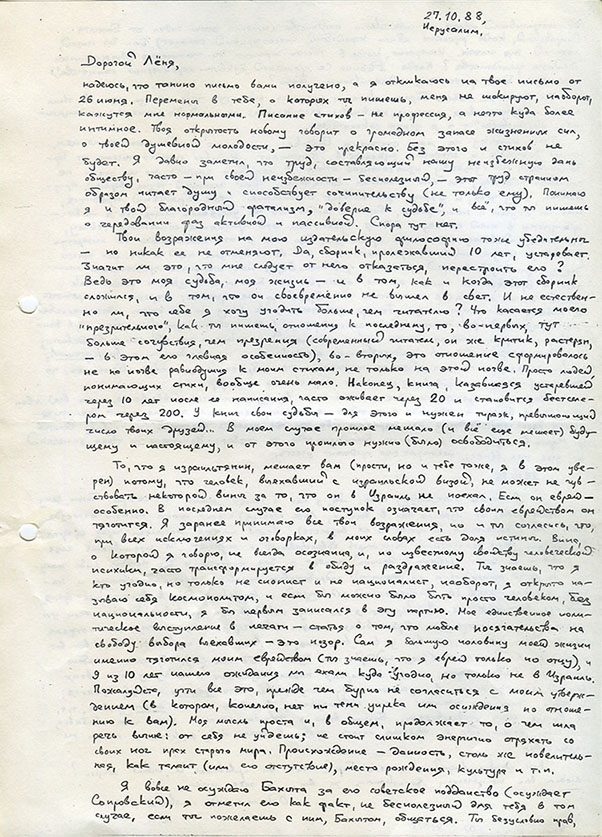 27.10.88,
Иерусалим.
Дорогой Лёня,
надеюсь, что танино письмо вами получено, а я откликаюсь на твое письмо от
26 июня. Перемены в тебе, о которых ты пишешь, меня не шокируют, наоборот,
кажутся мне нормальными. Писание стихов – не профессия, а нечто куда более
интимное. Твоя открытость новому говорит о громадном запасе жизненных сил,
о твоей душевной молодости, – это прекрасно. Без этого и стихов не
будет. Я давно заметил, что труд, составляющий нашу неизбежную дань
обществу, часто – при своей неизбежности – бесполезный, – этот труд странным
образом питает душу и способствует сочинительству (не только ему). Понимаю
я и твой благородный фатализм, "доверие к судьбе", и всё, что ты пишешь
о чередовании фаз активной и пассивной. Спора тут нет.
Твои возражения на мою издательскую философию тоже убедительны
– но никак ее не отменяют. Да, сборник, пролежавший 10 лет, устаревает.
Значит ли это, что мне следует от него отказаться, перестроить его?
Ведь это моя судьба, моя жизнь – и в том, как и когда этот сборник
сложился, и в том, что он своевременно не вышел в свет. И не естествен-
но ли, что себе я хочу угодить больше, чем читателю? Что касается моего
"презрительного", как ты пишешь, отношения к последнему, то, во-первых, тут
больше сочувствия, чем презрения (современный читатель, он же критик, растерян,
– в этом его главная особенность), во-вторых, это отношение сформировалось
не на почве равнодушия к моим стихам, не только на этой почве. Просто людей,
понимающих стихи, вообще очень мало. Наконец, книга, казавшаяся устаревшей
через 10 лет после ее написания, часто оживает через 20 и становится бестсел-
ером через 200. У книг свои судьбы – для этого и нужен тираж, превышающий
число твоих друзей... В моем случае прошлое мешало (и всё еще мешает) буду-
щему и настоящему, и от этого прошлого нужно (было) освободиться.
То, что я израильтянин, мешает вам (прости, но и тебе тоже, я в этом уве-
рен) потому, что человек, выехавший с израильской визой, не может не чув-
ствовать некоторой вины за то, что он в Израиль не поехал. Если он еврей –
особенно. В последнем случае его поступок означает, что своим еврейством он
тяготится. Я заранее принимаю все твои возражения, но и ты согласись, что,
при всех исключениях и оговорках, в моих словах есть доля истины. Вина,
о которой я говорю, не всегда осознана, и, по известному свойству человеческой
психики, часто трансформируется в обиду и раздражение. Ты знаешь, что я
кто угодно, но только не сионист и не националист, наоборот, я открыто на-
зываю себя космополитом, и если бы можно было быть просто человеком, без
национальности, я бы первым записался в эту партию. Мое единственное поли-
тическое выступление в печати – статья о том, что любые посягательства на
свободу выбора выехавших – это позор. Сам я большую половину моей жизни
именно тяготился моим еврейством (ты знаешь, что я еврей только по отцу), и
9 из 10 лет нашего ожидания мы ехали куда угодно, но только не в Израиль.
Пожалуйста, учти все это, прежде чем бурно не согласиться с моим утверж-
дением (в котором, конечно, нет ни тени упрека или осуждения по отноше-
нию к вам). Моя мысль проста и, в общем, продолжает то, о чем шла
речь выше: от себя не уйдешь; не стоит слишком энергично отряхать со
своих ног прах старого мира. Происхождение – данность, столь же повелитель-
ная, как талант (или его отсутствие), место рождения, культура и т.п.
Я вовсе не осуждаю Бахыта за его советское подданство (осуждает
), я отметил его как факт, не бесполезный для тебя в том
случае, если ты пожелаешь с ним, Бахытом, общаться. Ты безусловно прав,